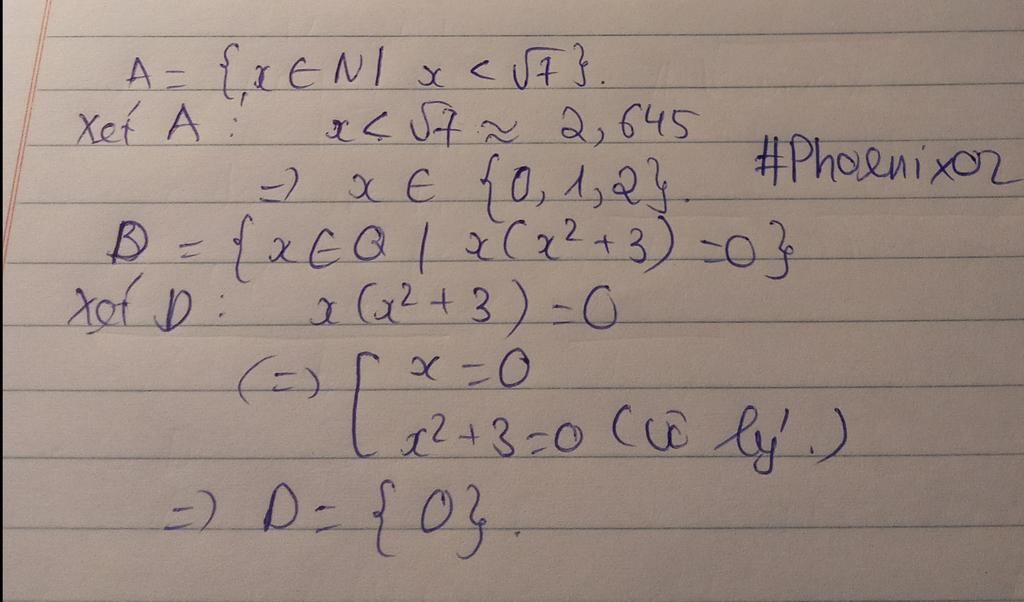 A = {x ∈ N | x < √7}.
Xét A : x < √7 ≈ 2,645
=> x ∈ {0, 1, 2}.
#Phoenix02
B = {x ∈ Q | x(x² + 3) = 0}
Xét D : x(x² + 3) = 0
(=) [ x = 0
x² + 3 = 0 (vô lý.)
=> D = {0}.